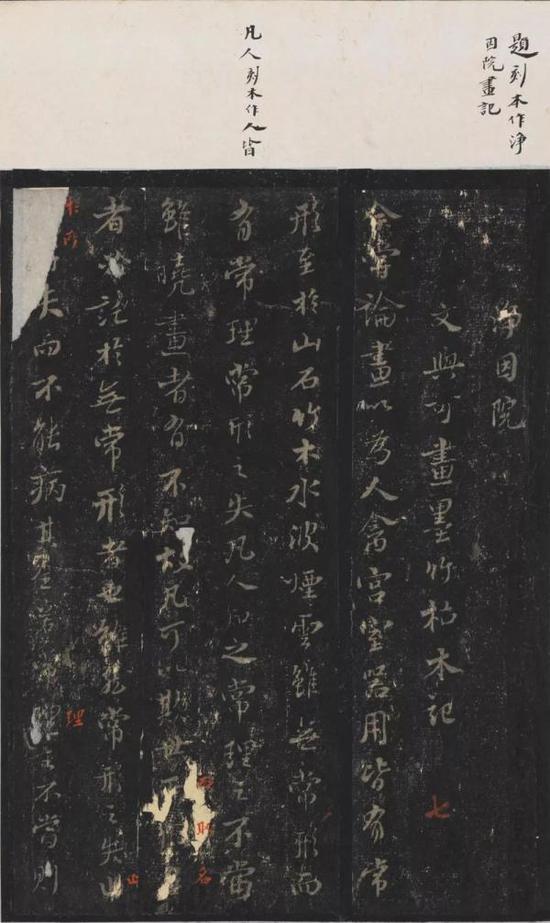 題刻木作淨
因院畫記
凡人刻木作人皆
淨因院
文與可畫墨竹枯木記 七
余嘗論畫以為人禽宮室器用皆有常
形至於山石竹木水波煙雲雖無常形而
有常理常形之失凡人知之常理之不當
雖曉畫者有不知故凡可以欺世而取名
者必託於無常形者也雖然常形之失止
於所失而不能病其全若常理之不當則